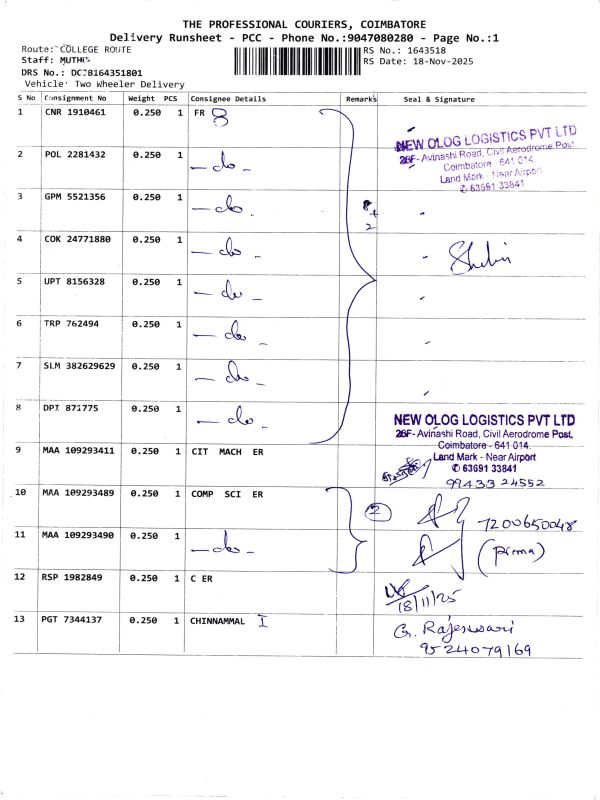 THE PROFESSIONAL COURIERS, COIMBATORE
Delivery Runsheet - PCC - Phone No.:9047080280 - Page No.:1
Route: COLLEGE ROUTE
RS No.: 1643518
Staff: MUTHU
RS Date: 18-Nov-2025
DRS No.: DCJB164351801
Vehicle: Two Wheeler Delivery
S No Consignment No Weight PCS Consignee Details Remarks Seal & Signature
1 CNR 1910461 0.250 1 FR 8
NEW OLOG LOGISTICS PVT LTD
26F- Avinashi Road, Civil Aerodrome Post
Coimbatore - 641 014.
Land Mark - Near Airport
✆ 63691 33841
2 POL 2281432 0.250 1 — do -
3 GPM 5521356 0.250 1 — do -
8+2
4 COK 24771880 0.250 1 — do -
5 UPT 8156328 0.250 1 — do -
6 TRP 762494 0.250 1 — do -
7 SLM 382629629 0.250 1 — do -
8 DPI 871775 0.250 1 — do -
NEW OLOG LOGISTICS PVT LTD
26F- Avinashi Road, Civil Aerodrome Post,
Coimbatore - 641 014.
Land Mark - Near Airport
✆ 63691 33841
9 MAA 109293411 0.250 1 CIT MACH ER
99433 24552
10 MAA 109293489 0.250 1 COMP SCI ER 2
7200650048
11 MAA 109293490 0.250 1 — do -
(Prema)
12 RSP 1982849 0.250 1 C ER
18/11/25
13 PGT 7344137 0.250 1 CHINNAMMAL I
G. Rajeswari
9524079169